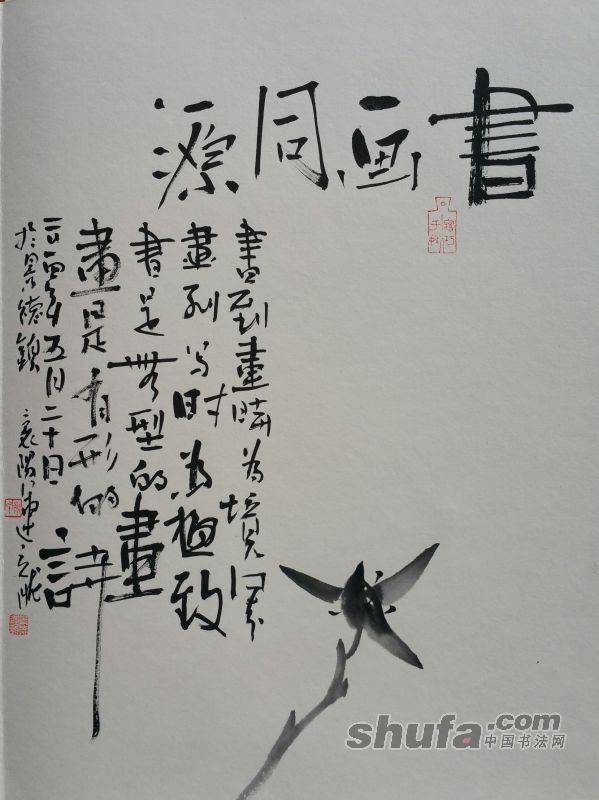 書画同源
書到畫時為境界
畫到写时為極致
書是無型的畫
畫是有形的詩
五月二十日
於景德鎮
shufa.com
中国书法网